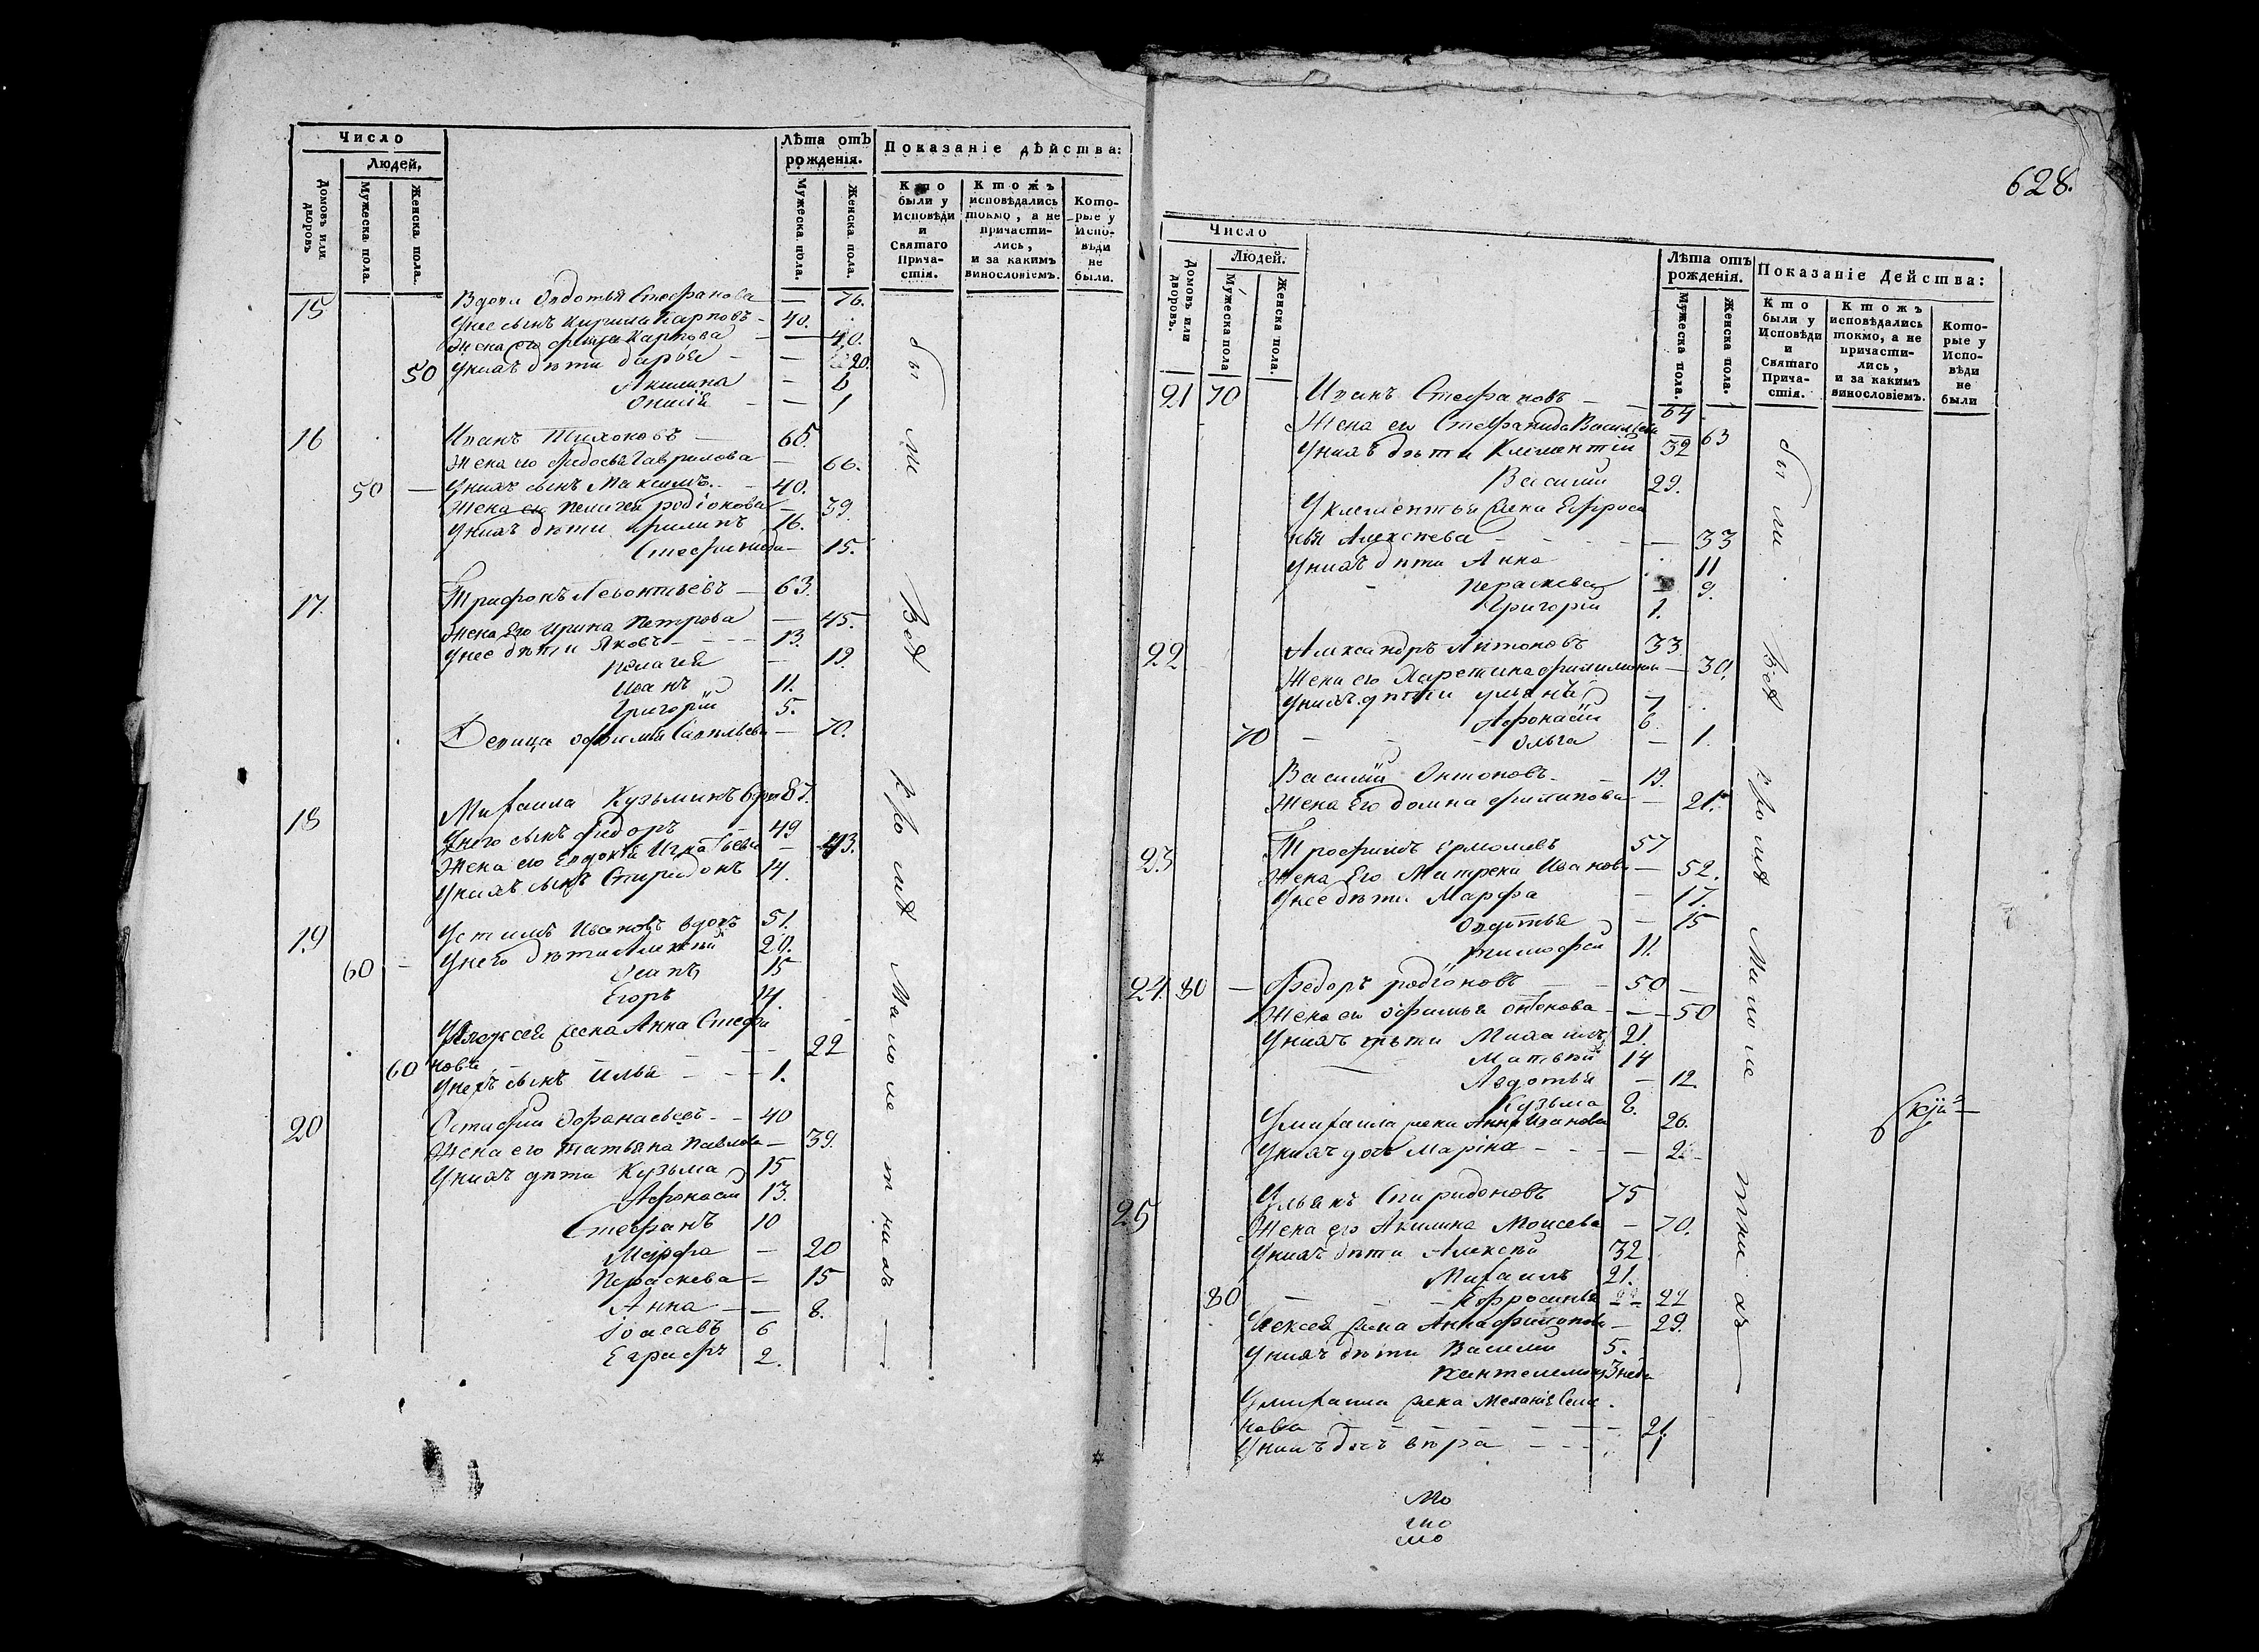 Число
Людей.
Домовъ или дворовъ
Мужеска пола.
Женска пола.
Лѣта отъ рожденія.
Мужеска пола.
Женска пола.
Показаніе дѣйства:
Кто были у Исповѣди и Святаго Прича-стія.
Ктожъ исповѣдались токмо, а не причасти-лись, и за какимъ винословіемъ.
Кото-рые у Испо-вѣди не были.
15 Вдова Овдотья Стефанова — 76.
У нее сынъ Кирила Карповъ - 40.
Жена его Карпова — 40.
50 У нихъ дѣти Дарья — 20.
Акилина —
— 1
16 Иванъ Тихоновъ — 65.
Жена его Федосья Гаврилова — 66.
50 — У нихъ сынъ Максимъ - 40.
Жена ея Пелагея Родіонова — 39.
У нихъ дѣти Филипъ 16.
Стефанида — 15.
17. Трифонъ Леонтьевъ — 63.
Жена Его Ирина Петрова — 45.
У нее дѣти Яковъ - - - 13.
Пелагея — 19.
Иванъ 11.
Григорій 5.
Девица Офимія Савельева — 70.
18 Михаила Кузьминъ вдовъ 87.
У него сынъ Федоръ 49
Жена его Евдокія Игнатьева — 43.
У нихъ сынъ Спиридонъ 14.
19 Устимъ Ивановъ вдовъ 51.
У него дѣти Алексѣй 20.
60 — Осипъ 15
Егоръ 14.
У Алексея жена Анна Стефа
60 нова — 22
У нихъ сынъ Илья — 1.
20 Остафій Офанасьевъ - - 40
Жена его Татьяна Павлова — 39.
У нихъ дѣти Кузьма 15
Афонасій 13.
Стефанъ 10
Марфа — 20
Пераскева — 15
Анна — 8.
Іоасавъ 6
Евграфъ 2.
были Всѣ кромѣ малолетнихъ —
628.
Число
Людей.
Домовъ или дворовъ.
Мужеска пола
Женска пола.
Лѣта отъ рожденія.
Мужеска пола.
Женска пола.
Показаніе Действа:
Кто были у Исповѣди и Святаго Прича-стія.
Ктожъ исповѣдались токмо, а не причасти-лись, и за какимъ винословіемъ.
Кото-рые у Испо-вѣди не были
21 70 Иванъ Стефановъ — 64
Жена его Стефанида Васильева 63
У нихъ дѣти Климентій 32
Василій 29.
У Климентья жена Ефроси
нья Алексѣева — 33
У нихъ дѣти Анна 11
Пераскева 9.
Григорій 1.
22 Александръ Антоновъ 33.
Жена его Харетина Филимонова — 30.
У нихъ дѣти Ульянъ 7
Афонасій 6.
70 — Ольга — 1.
Василій Онтоновъ - 19.
Жена Его Домна Филипова — 21.
23 Трофимъ Ермолаевъ 57
Жена Его Матрена Иванова — 52.
У нее дѣти Марфа — 17.
Овдотья — 15
Тимофей 11.
24. 80 — Федоръ Родіоновъ — 50
Жена его Офимья Онтонова — 50
У нихъ дѣти Михаилъ 21.
Матвѣй 14
Авдотья — 12.
Кузьма 8.
У Михаила жена Анна Иванова 26.
У нихъ дочь Маріна - - - — 2.
25 Ульянъ Спиридоновъ 75
Жена его Акилина Моисеева — 70.
У нихъ дѣти Алексѣй 32
Михаилъ 21.
80 — Ефросинья 22
Алексея жена Анна — 29.
У нихъ дѣти Василій 5.
Пантелемонъ 3 недѣ
У Михаила жена Меланія Семе
нова — 21.
У нихъ дочь Вѣра - - - 1
были Всѣ кромѣ Малолетнихъ —